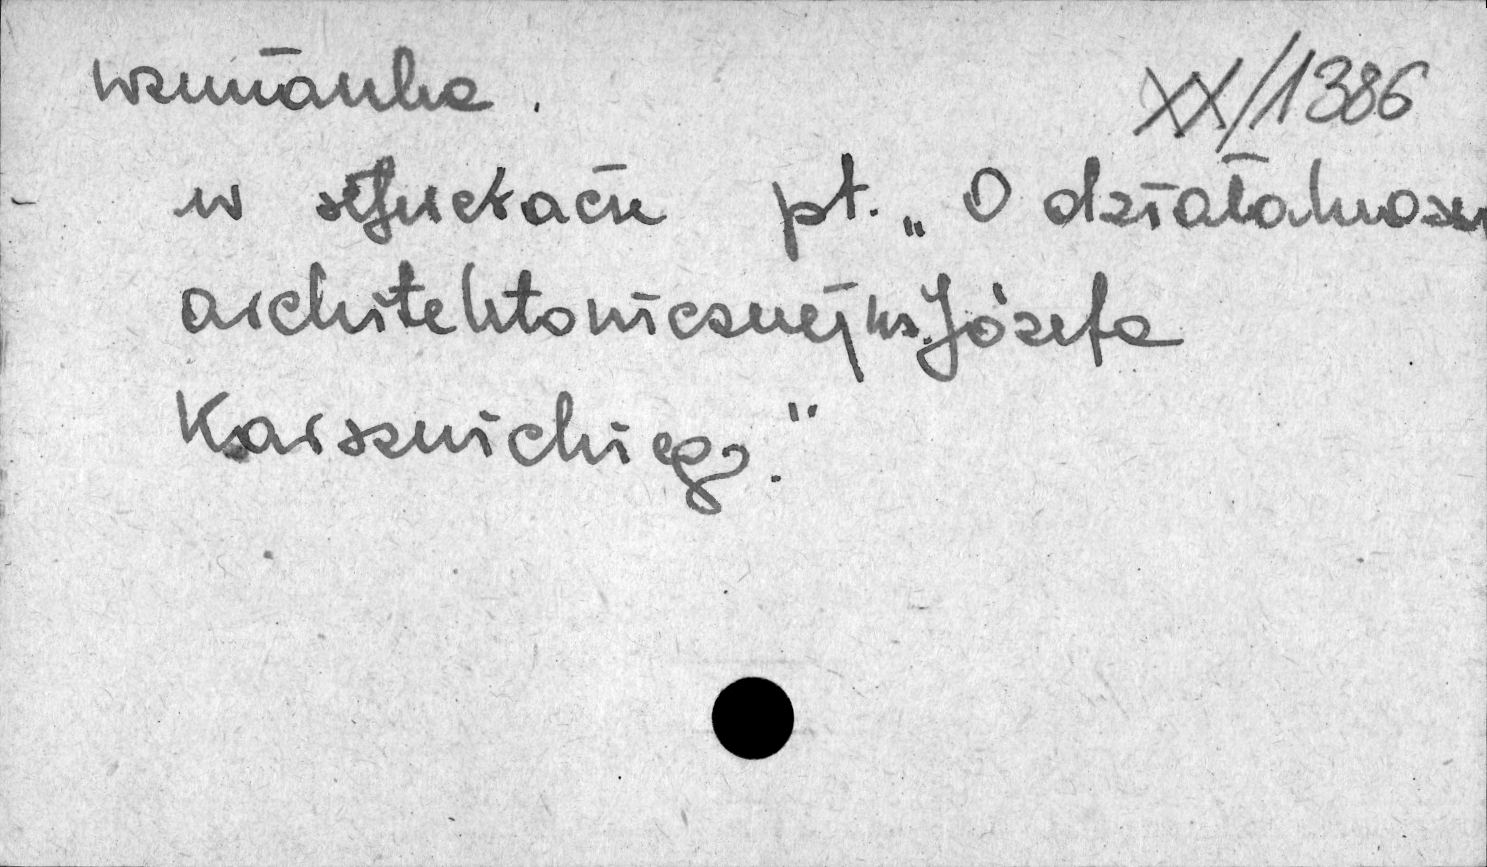 wzmianka. XX/1386
w referacie pt. „O działalności
architektonicznej ks. Józefa
Karsznickiego."